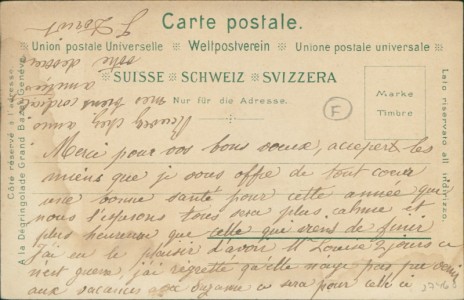 Carte postale.
Union postale Universelle Weltpostverein Unione postale universale
SUISSE SCHWEIZ SVIZZERA
Nur für die Adresse.
Marke
Timbre
F
Côté réservé à l'adresse.
A la Dégringolade Grand Bazar Genève
Lato riservato all'indirizzo.
Recevez chez amie
mes bons
Merci pour vos bons voeux, acceptez les
miens que je vous offre de tout coeur
une bonne santé pour cette année que
nous l'espérons tous sera plus calme et
plus heureuse que celle qui viens de finir
J'ai eu le plaisir d'avoir Louise 2 jours ce
n'est guère, j'ai regretté qu'elle n'aye pas pu venir
aux vacances ce sera pour cette